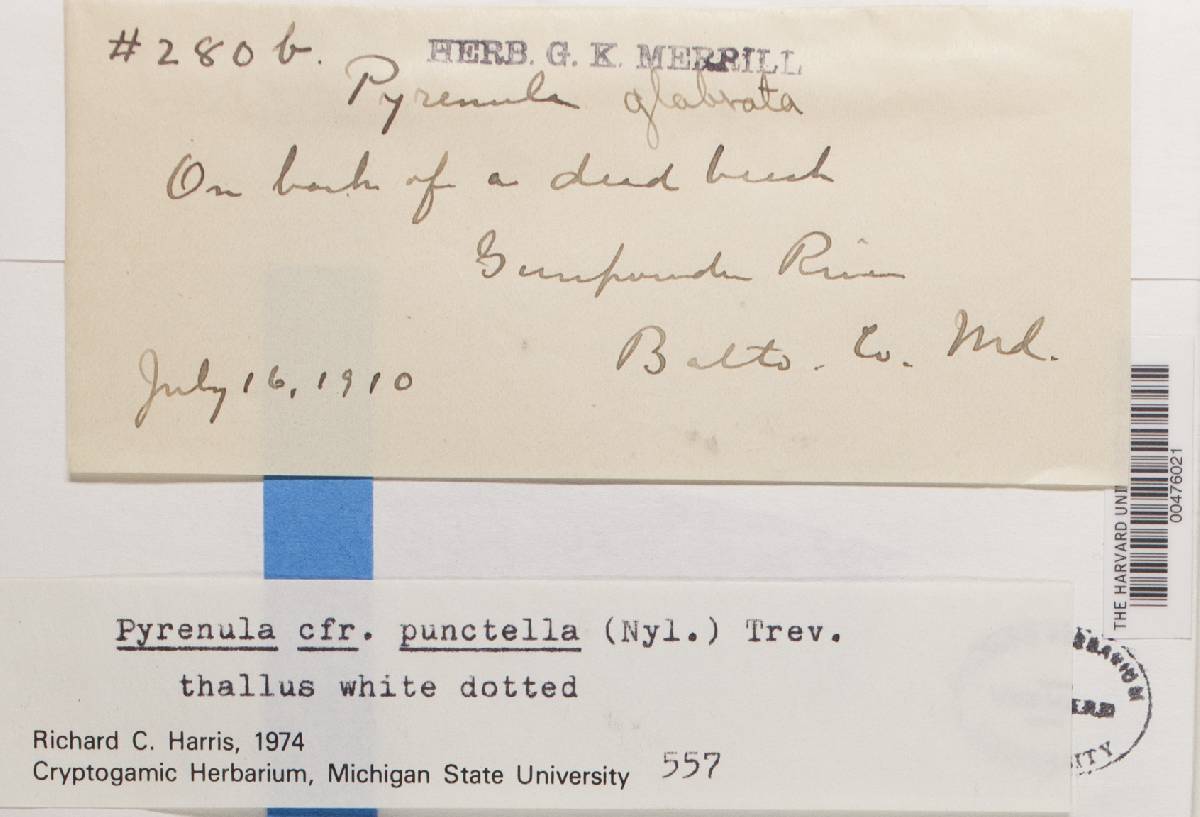 #280b.
HERB. G. K. MERRILL
Pyrenula glabrata
On bark of a dead beech
Gunpowder River
Balto. Co. Md.
July 16, 1910
THE HARVARD UNI
00476021
Pyrenula cfr. punctella (Nyl.) Trev.
thallus white dotted
Richard C. Harris, 1974
Cryptogamic Herbarium, Michigan State University
557